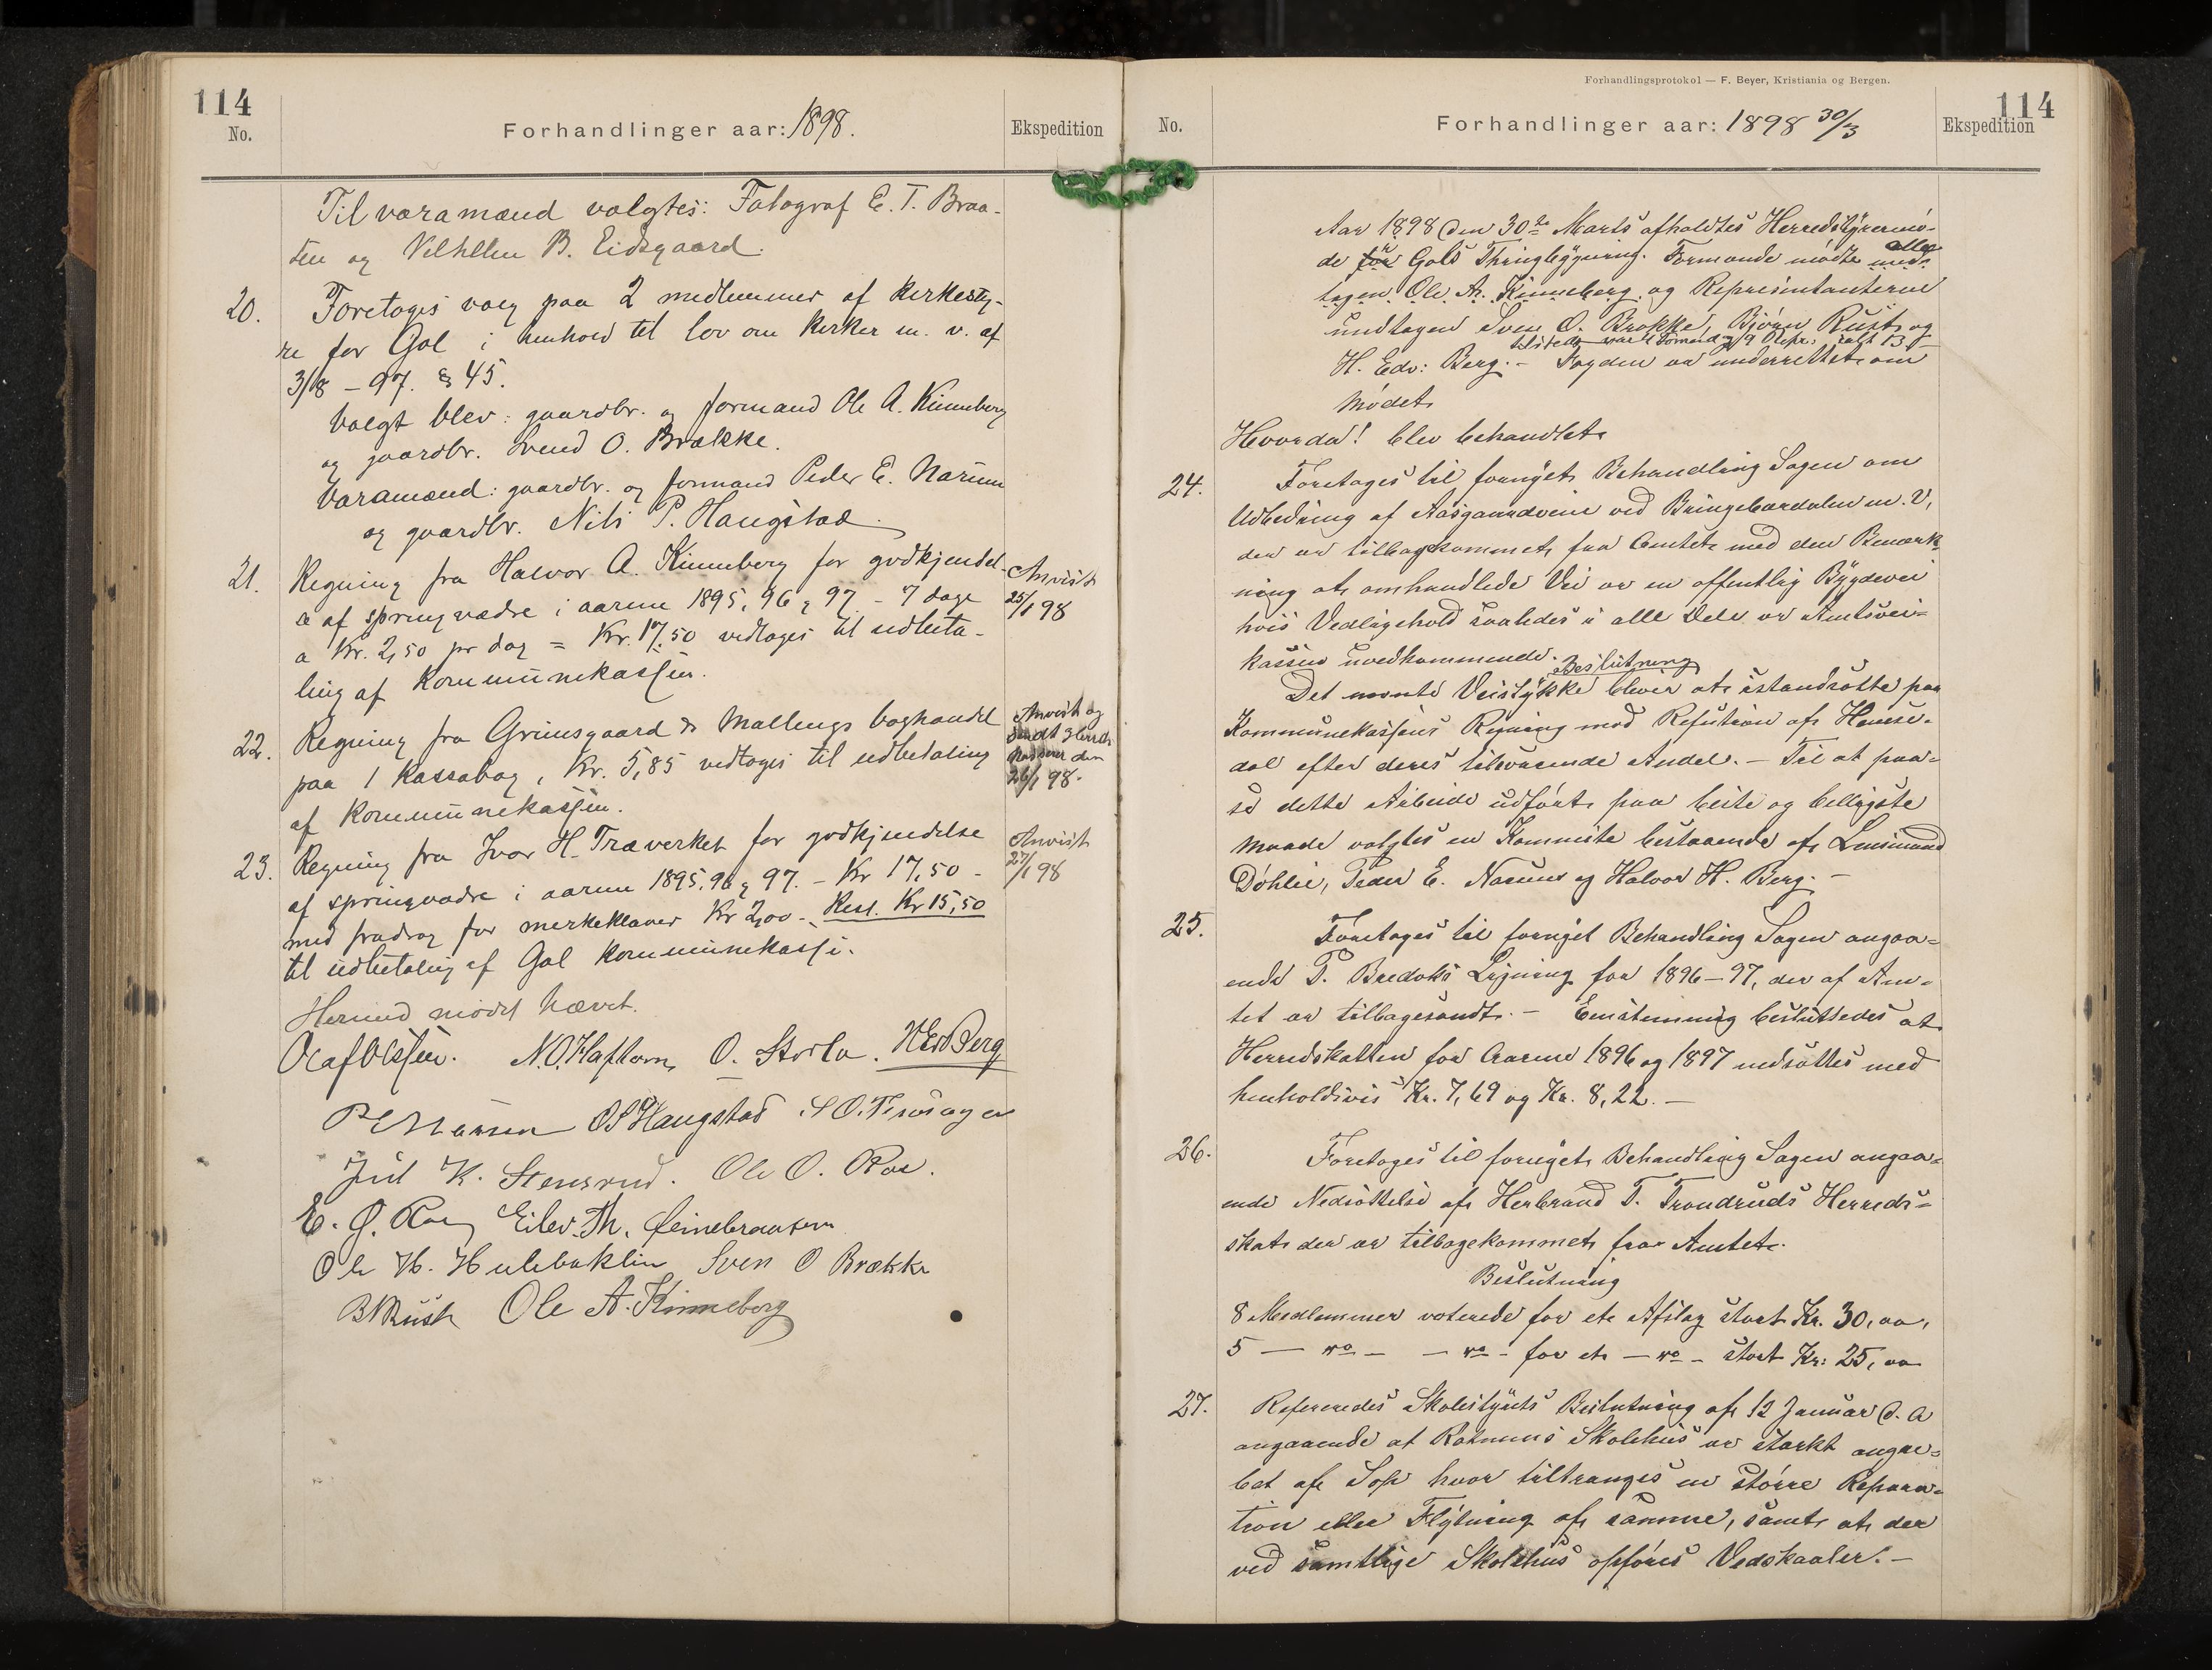 114
No.
Forhandlinger aar: 1898.
Ekspedition
Til varamænd valgtes: Fotograf E. T. Braa-
ten og Vilhelm B. Eidsgaard.
20. Foretages valg paa 2 medlemmer af kirkesty-
re for Gol i henhold til lov om kirker m. v. af
3/8 - 97. § 45.
Valgt blev: gaardbr. og formand Ole A. Kinneberg
og gaardbr. Svend O. Brække.
Varamænd: gaardbr. og formand Peder E. Narum
og gaardbr. Nils P. Haugstad.
21. Regning fra Halvor A. Kinneberg for godkjendel-
se af springvædre i aarene 1895, 96 & 97 - 7 dage
a Kr. 2,50 pr dag = Kr. 17,50 vedtages til udbeta-
ling af Kommunekassen.
Anvist
25/1 98
22. Regning fra Grimsgaard & Mallings boghandel
paa 1 Kassabog, Kr. 5,85 vedtages til udbetaling
af Kommunekassen.
Anvist og
sendt Herreds
kasserer den
26/1 98.
23. Regning fra Ivar H. Træverket for godkjendelse
af springvædre i aarene 1895, 96 & 97. - Kr 17,50 -
med fradrag for merkeklaver Kr 2,00 - Rest. Kr 15,50
til udbetaling af Gol Kommunekasse.
Anvist
27/1 98
Hermed mødet hævet.
Olaf Olssen. N. O. Haftorn, O. Storla. H Edv Berg
P E Narum O P Haugstad S O.
Juil K. Stensrud. Ole O. Roe.
E. G. Roe Eilev Th.
Ole H. Hulebaklin Sven O Brække
B N Rust Ole A. Kinneberg
Forhandlingsprotokol — F. Beyer, Kristiania og Bergen.
114
No.
Forhandlinger aar: 1898 30/3
Ekspedition
Aar 1898 den 30te Marts afholdtes Herredstyremø-
de i Gols Thingbygning. Formænde mødte alle
undtagen Ole A. Kinneberg og Repræsentanterne
undtagen Sven O. Brække, Bjørn Rust og
tilstede var 4 Formænd og 9 Repr: ialt 13
H. Edv: Berg. - Fogden er underrettet om
Mødet
Hvorda! blev behandlet
24. Foretages til fornyet Behandling Sagen om
Udbedring af Aasgaardveien ved Bringebærdalen m. V,
der er tilbagekommet fra Amtet med den Bemærk-
ning at omhandlede Vei er en offentlig Bygdevei
hvis Vedligehold saaledes i alle Dele er Amtsvei-
kassen uvedkommende.
Beslutning
Det nævnte Veistykke bliver at istandsætte paa
Kommunekassens Regning mod Refusion af Hemse-
dal efter deres tilsvarende Andel. - Til at paa-
se dette Arbeide udført paa beste og billigste
Maade valgtes en Kommite bestaaende af Lensmand
Døhlie, Peder E. Narum og Halvor H. Berg. -
25. Foretages til fornyet Behandling Sagen angaa-
ende P. Bredoks Ligning for 1896-97, der af Am-
tet er tilbagesendt. - Enstemmig besluttedes at
Herredskatten for Aarene 1896 og 1897 nedsættes med
henholdsvis Kr. 7,69 og Kr. 8,22. -
26. Foretages til fornyet Behandling Sagen angaa-
ende Nedsættelse af Herbrand T. Trondruds Herreds-
skat der er tilbagekommet fra Amtet.
Beslutning
8 Medlemmer voterede for et Afslag stort Kr. 30,00,
5 — " — — " - for et — " - stort Kr: 25,00
27. Refereredes Skolestyrets Beslutning af 12 Januar d. A
angaaende at Rotneims Skolehus er stærkt angre-
bet af Sop hvor tiltrænges en større Repara-
tion eller Flytning af samme, samt at der
ved samtlige Skolehus opføres Vedskaaler. -